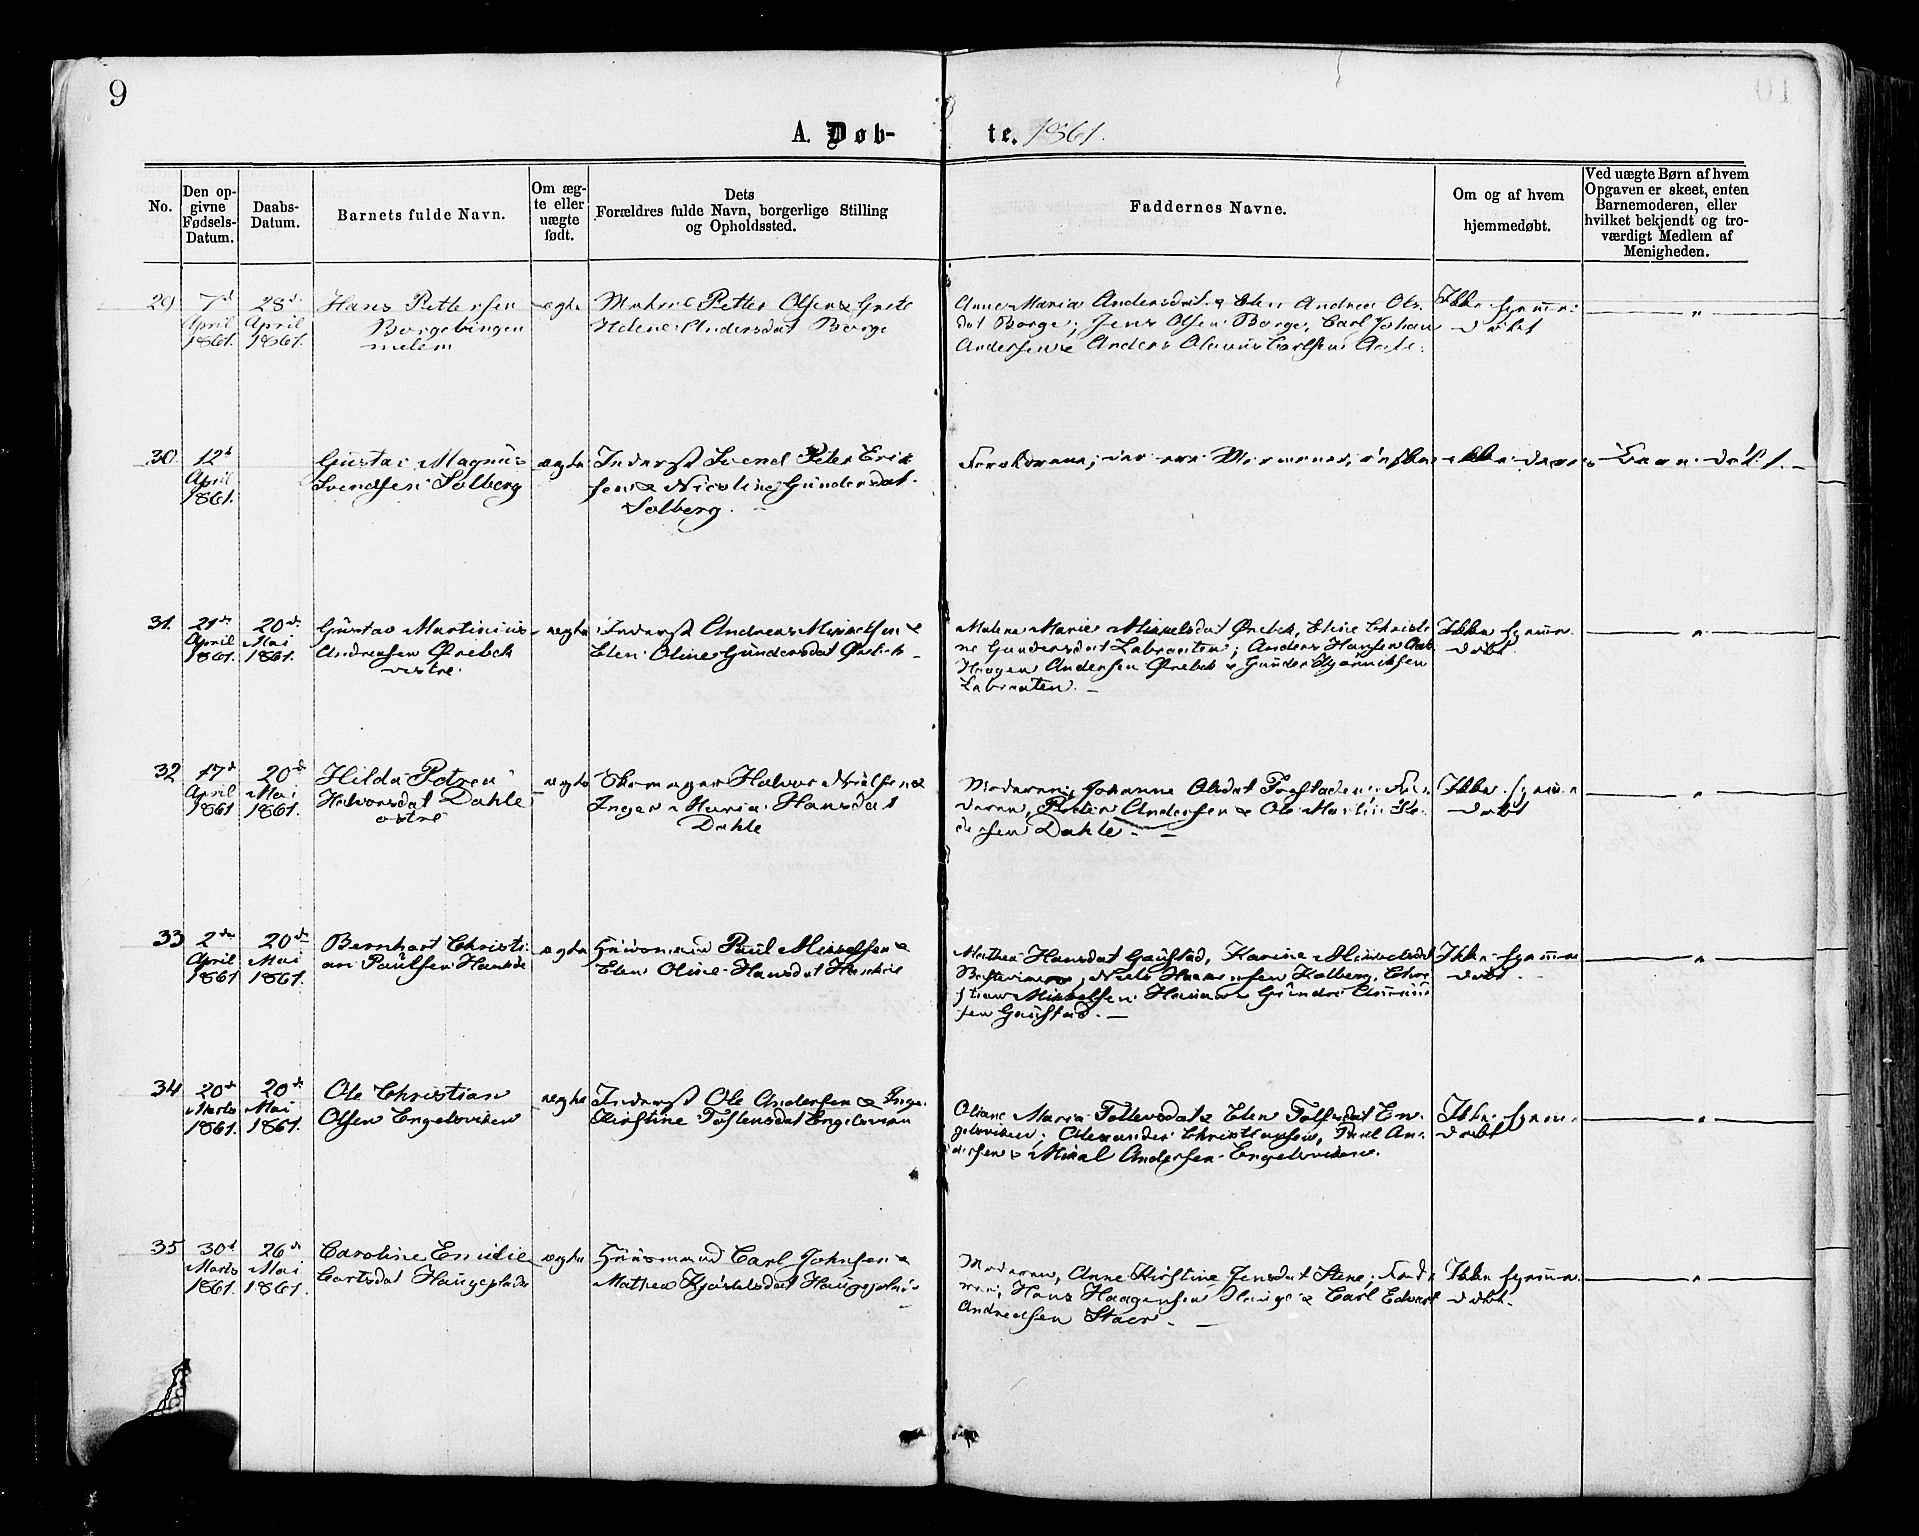 9
A. Døb-
te. 1861.
No.
Den op-
givne
Fødsels-
Datum.
Daabs-
Datum.
Barnets fulde Navn.
Om æg-
te eller
uægte
født.
Dets
Forældres fulde Navn, borgerlige Stilling
og Opholdssted.
Faddernes Navne.
Om og af hvem
hjemmedøbt.
Ved uægte Børn af hvem
Opgaven er skeet, enten
Barnemoderen, eller
hvilket bekjendt og tro-
værdigt Medlem af
Menigheden.
29
7d
April
1861.
28d
April
1861.
Hans Pettersen
Borgebingen
melem
ægte
Petter Olsen & Grete
Helene Andersdat Borge
Anne Maria Andersdat & Elen Andrea Ols
dat Borge; Jens Olsen Borge, Carl Johan
Andersen & Anders Olavus Carlsen
Ikke hjemme-
døbt
"
30
12d
April
1861.
Gustav Magnus
Svendsen Solberg
ægte
Inderst Svend Peter Erik
sen & Nicoline Gundersdat
Solberg.
Forældrene, der ere Mormoner, ikke Barn døbt.
31.
21de
April
1861.
20de
Mai
1861.
Gustav Martinius
Andreasen Ørebek
vestre.
ægte
Inderst Andreas Mikkelsen &
Elen Oline Gundersdat Ørebek
Malene Marie Mikkelsdat Ørebek, Christi
ne Gundersdat Labraaten; Anders Hansen
Haagen Andersen Ørebek & Gunder
Labraaten.
Ikke hjemme-
døbt.
"
32
17d
April
1861
20de
Mai
1861.
Hilda Petrea
Halvorsdat Dahle
østre
ægte
Skomager Halvor Nielsen &
Inger Maria Hansdat
Dahle
Moderen, Johanne Olsdat; Fa-
deren, Peder Andersen & Ole Martin Pe-
dersen Dahle.
Ikke hjemme
døbt
"
33
2den
April
1861
20de
Mai
1861.
Bernhart Christi-
an Paulsen
ægte
Huusmand Paul Mikkelsen &
Elen Oline Hansdat
Mathea Hansdat Gaustad, Karine Mikkelsdat
Niels Kolberg, Chri
stian Mikkelsen
sen Gaustad.
Ikke hjemme
døbt.
"
34
20de
Marts
1861.
20de
Mai
1861.
Ole Christian
Olsen Engelsviken
ægte
Inderst Ole Andersen & Inge
Kirstine Engelsviken
Oliane Maria & Elen En
gelsviken; Alexander Christiansen, Paul An-
dersen & Andersen Engelsviken.
Ikke hjem-
døbt
"
35
30d
Marts
1861.
26de
Mai
1861.
Caroline Emilie
Carlsdat
ægte
Huusmand Carl Johnsen &
Mathea
Moderen, Anne Kirstine Jensdat Stene; Fade
ren, Hans Haagensen Hauge & Carl Edvart
Andreasen
Ikke hjemme
døbt.
"